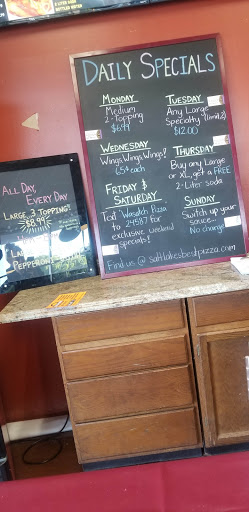 DAILY SPECIALS
MONDAY
Medium
2-Topping
$6.99
TUESDAY
Any Large
Specialty (limit 2)
$12.00
WEDNESDAY
Wings, Wings, Wings!
65¢ each
THURSDAY
Buy any Large
or XL, get a FREE
2-Liter soda
FRIDAY &
SATURDAY
Text Wasatch Pizza
to 24587 for
exclusive weekend
specials!
SUNDAY
Switch up your
sauce-
No charge!
Find us @ saltlakesbestpizza.com
ALL DAY,
EVERY DAY
LARGE, 3 TOPPING!
$8.99
PEPPERONI